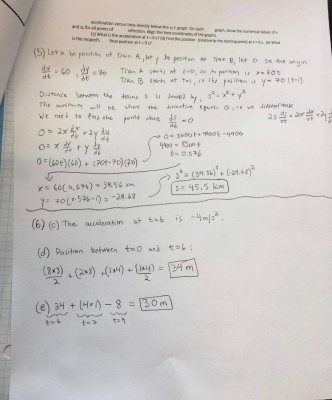 acceleration versus time directly below the v-t graph. On each graph, show the numerical values of x
and a, for all points of inflection. Align the time coordinates of the graphs.
(c) What is the acceleration at t = 6 s? (d) Find the position (relative to the starting point) at t = 6 s. (e) What
is the moped's final position at t = 9 s?
(5) Let x be position of Train A, let y be position at Train B, let O be the origin
dx/dt = 60, dy/dt = 70 Train A starts at t=0, so its position is x = 60t
Train B starts at t=1, so its position is y = 70(t-1)
Distance between the trains S is found by, S² = x² + y²
The minimum will be where the derivative equals 0, so we differentiate
We need to find the point where ds/dt = 0 2s ds/dt = 2x dx/dt + 2y
0 = 2x dx/dt + 2y dy/dt 0 = 3600t + 4900t - 4900
0 = x dx/dt + y dy/dt 4900 = 8500t
0 = (60t)(60) + (70t-70)(70) t = 0.576
x = 60(0.576) = 34.56 km S² = (34.56)² + (-29.68)²
y = 70(0.576-1) = -29.68 S = 45.5 km
(6) (c) The acceleration at t=6 is -4m/s².
(d) Position between t=0 and t=6:
(8×3)/2 + (2×8) + (1×4) + (1×4)/2 = 34m
(e) 34 + (4×1) - 8 = 30m
t=6 t=7 t=9